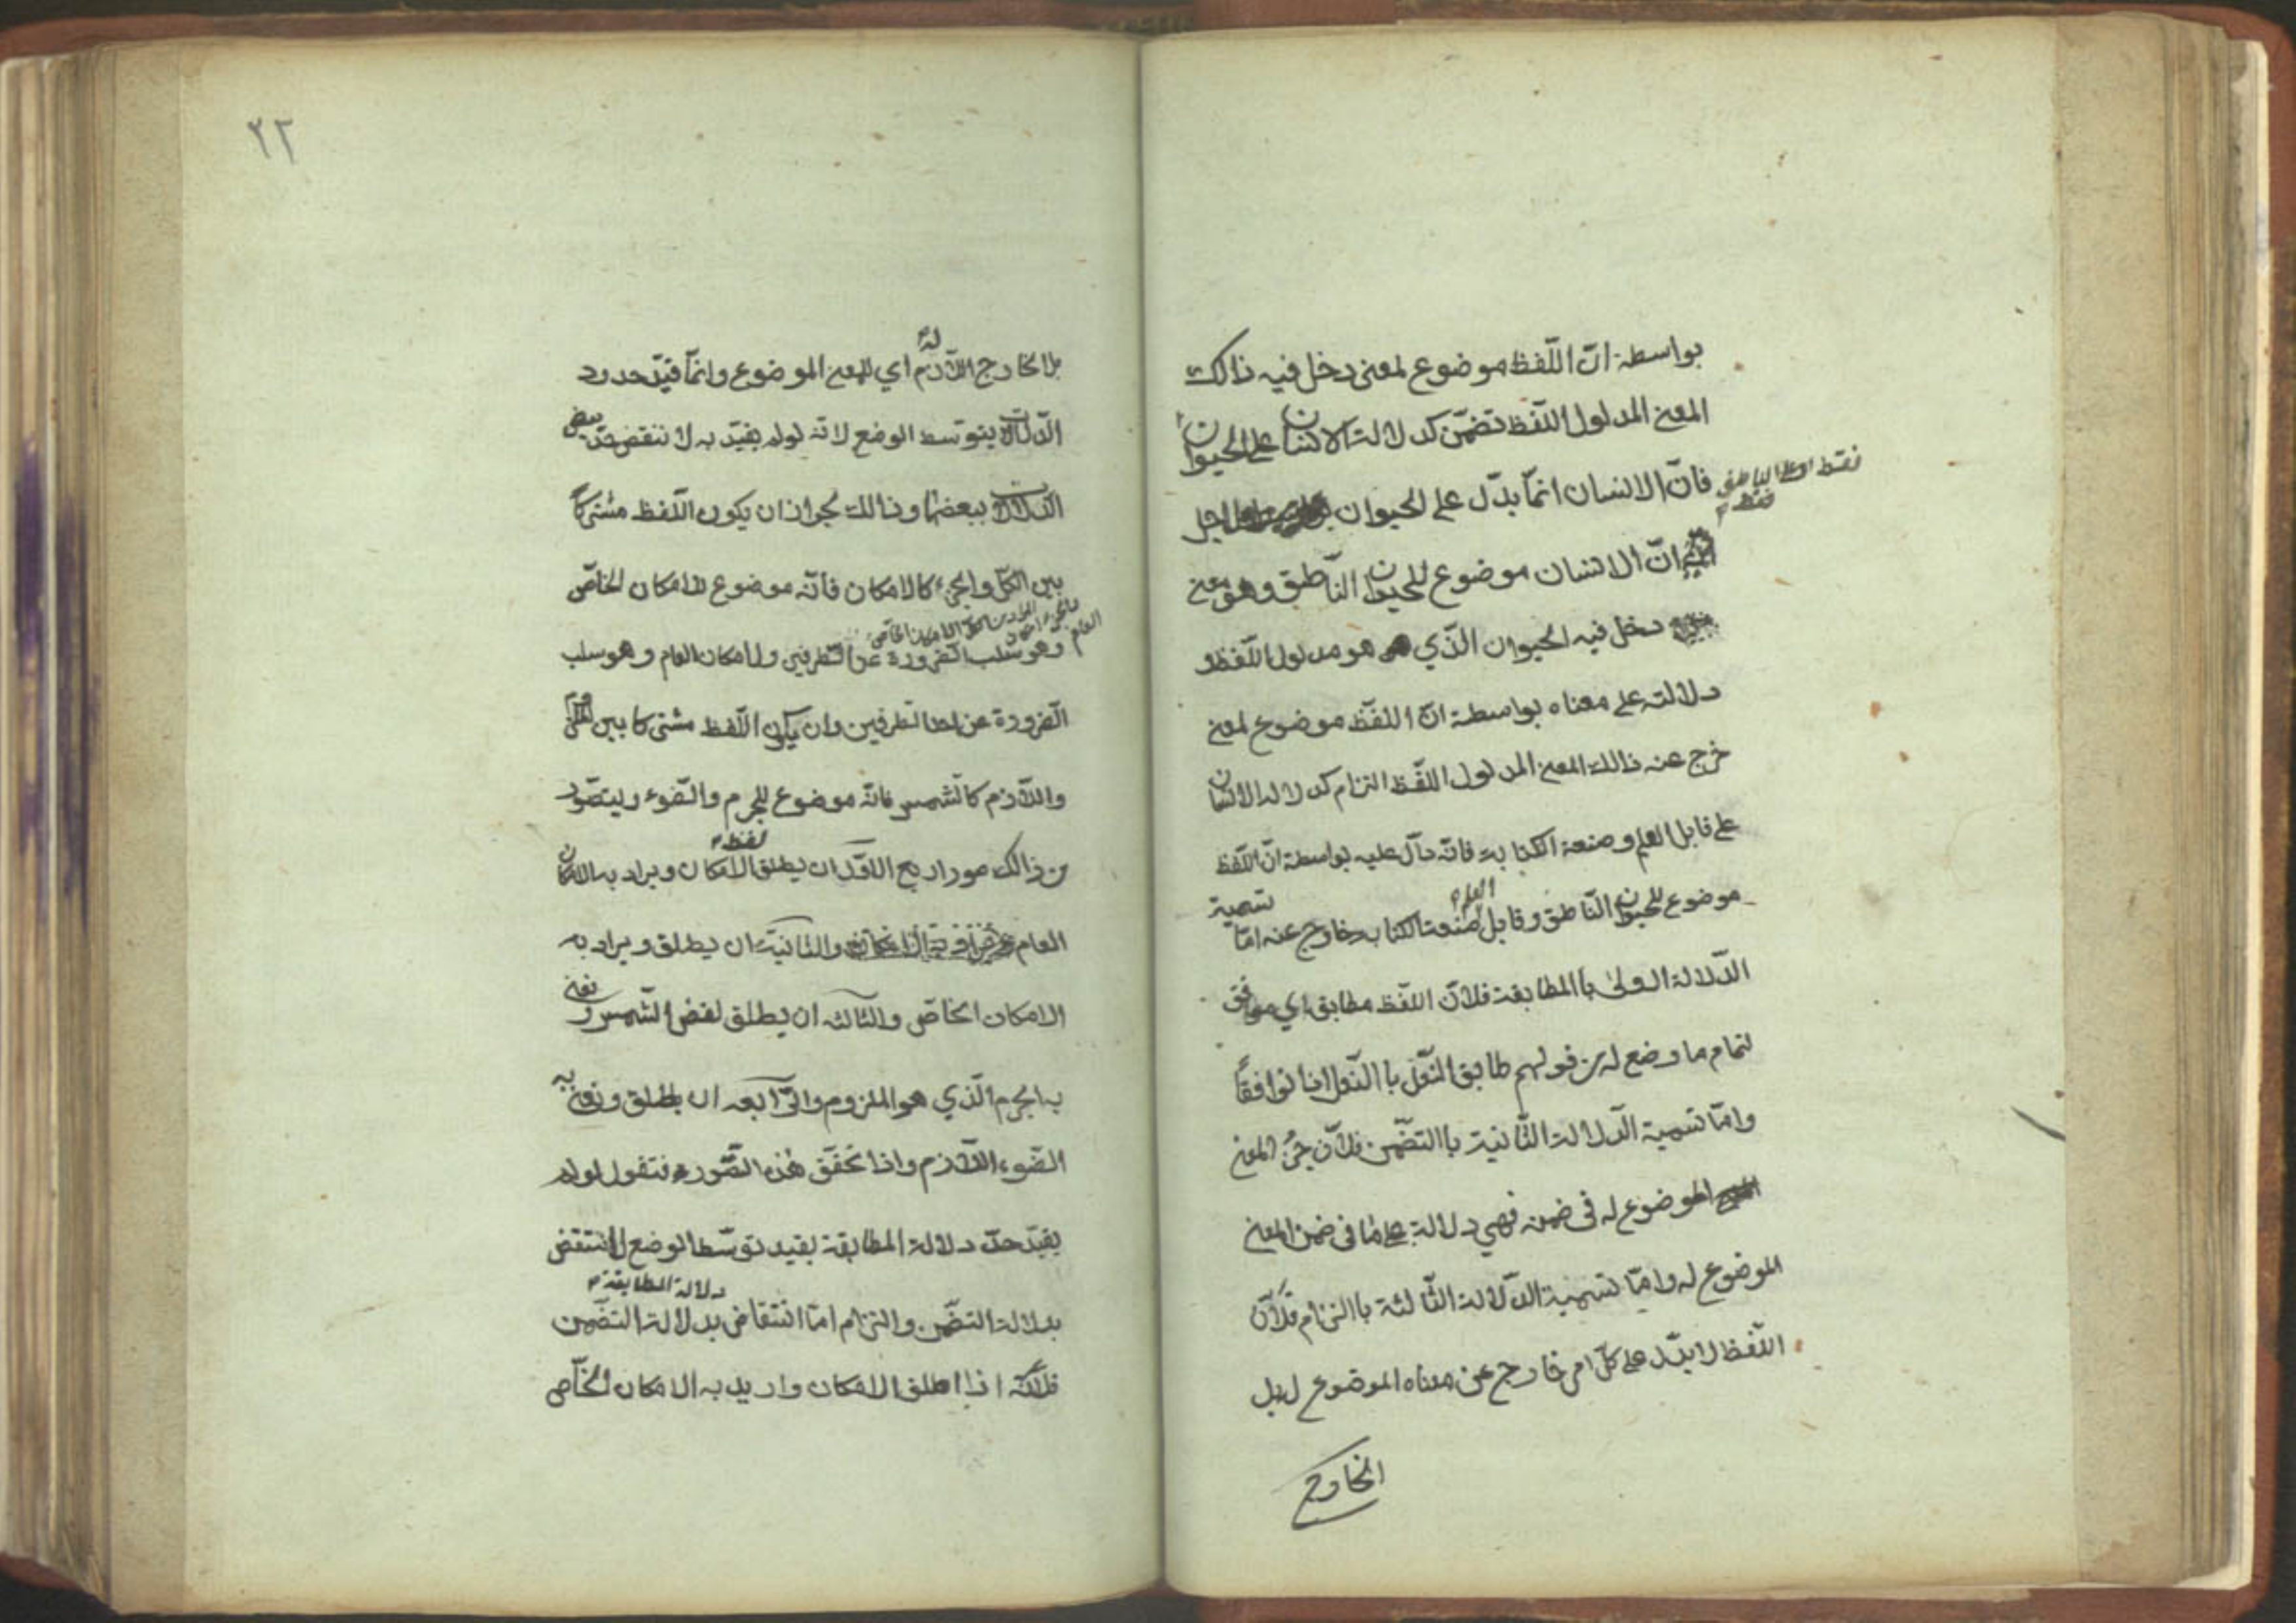 بواسطة انّ اللّفظ موضوع لمعنى دخل فيه ذالك
المعنى المدلول اللّفظ تضمّن كدلالة الانسان على الحيوان
فقط او على الناطق فقط
فانّ الانسان انمّا يدّل على الحيوان لاجل
انّ الانسان موضوع للحيوان النّاطق وهو معنى
دخل فيه الحيوان الذّي هو مدلول اللّفظ و
دلالته على معناه بواسطة انّ اللفّظ موضوع لمعنى
خرج عنه ذالك المعنى المدلول اللّفظ التزام كدلالة الانسان
على قابل العلم وصنعة الكتابة فانّه دآلّ عليه بواسطة انّ اللّفظ
موضوع للحيوان النّاطق وقابل العلم صنعة الكتابة خارج عنه امّا تسمية
الدّلالة الاولىٰ باالمطابقة فلانّ اللّفظ مطابق اي موافق
لتمام ما وضع له من قولهم طابق النّعل باالنّعل اذا توافقاً
وامّا تسمية الدّلالة الثّانية باالتضّمن فلانّ جزُ المعنى
الموضوع له فى ضمنه فهي دلالة على مٰا فى ضمن المعنى
الموضوع له وامّا تسمية الدّلالة الثّالثة باالتزام فلانّ
اللّفظ لا يدّل على كلّ امر خارج عن معناه الموضوع له بل
الخارج
٢٢
بل الخارج اللّازم له اي للمعنى الموضوع وانمّا قيّد حدود
الدّلالات بتوسّط الوضع لانّه لو لم يقيّد به لا ننقض حدّ بعض
الدّلالات ببعضها وذالك لجواز ان يكون اللّفظ مشتركاً
بين الكلّ والجزء كالامكان فانّه موضوع للامكان الخاصّ
وهو سلب الضّرورة عن الطّرفين والامكان العام وهو سلب
الضّرورة عن احد الطّرفين وان يكون اللّفظ مشتركا بين الملزوم
واللّازم كالشّمس فانّه موضوع للجرم والضّوء ويتصّور
من ذالك صور اربع الاوّل ان يطلق لفظ الامكان ويراد به الامكان
العام والثانية ان يطلق ويراد به
الامكان الخاصّ والثّالثه ان يطلق لفض الشّمس و نعنى
به الجرم الذّي هو الملزوم والرّآبعه ان يطلق ونعنى به
الضّوء اللّازم واذا تحقّق هٰذه الصّورة فنقول لو لم
يقيّد حدّ دلالة المطابقة بقيد توسّط الوضع لانتقض دلالة المطابقة
بدلالة التضمّن والتزام امّا انتقاض بدلالة التضمّن
فلانّه اذا اطلق الامكان واريد به الامكان الخآصّ